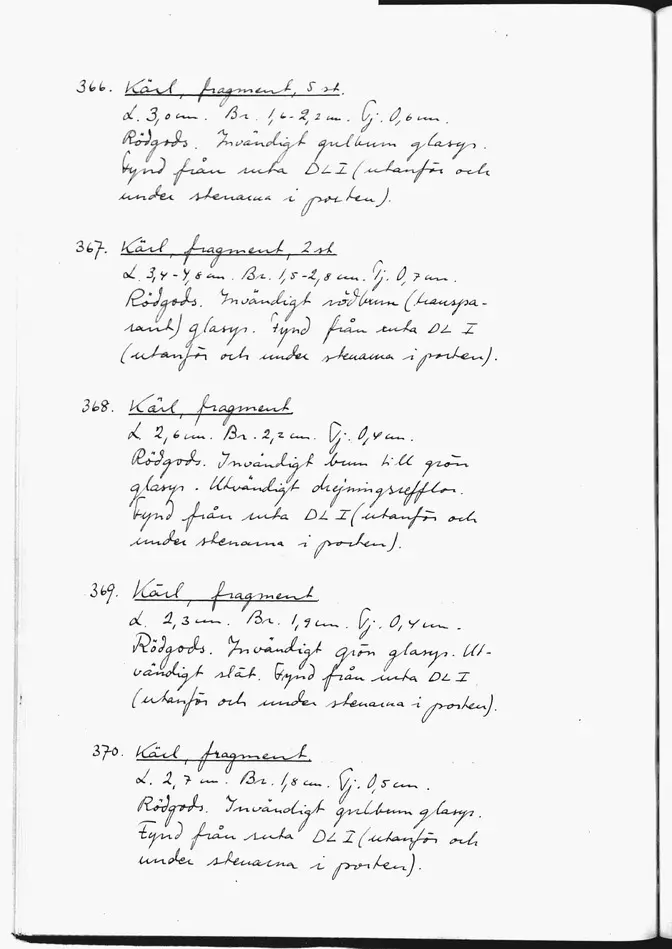 366. Kärl, fragment, 5 st.
L. 3,0 cm. Br. 1,6-2,2 cm. Tj. 0,6 cm.
Rödgods. Invändigt gulbrun glasyr.
Fynd från ruta DL I (utanför och
under stenarna i porten).
367. Kärl, fragment, 2 st
L. 3,4-4,8 cm. Br. 1,5-2,8 cm. Tj. 0,7 cm.
Rödgods. Invändigt rödbrun (transpa-
rant) glasyr. Fynd från ruta DL I
(utanför och under stenarna i porten).
368. Kärl, fragment.
L. 2,6 cm. Br. 2,2 cm. Tj. 0,4 cm.
Rödgods. Invändigt brun till grön
glasyr. Utvändigt drejningsrefflor.
Fynd från ruta DL I (utanför och
under stenarna i porten).
369. Kärl, fragment
L. 2,3 cm. Br. 1,9 cm. Tj. 0,4 cm.
Rödgods. Invändigt grön glasyr. Ut-
vändigt slät. Fynd från ruta DL I
(utanför och under stenarna i porten).
370. Kärl, fragment.
L. 2,7 cm. Br. 1,8 cm. Tj. 0,5 cm.
Rödgods. Invändigt gulbrun glasyr.
Fynd från ruta DL I (utanför och
under stenarna i porten).